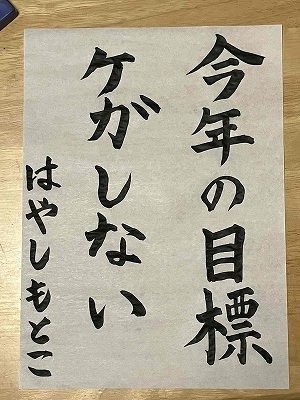 今年の目標
ケガしない
はやしもとこ